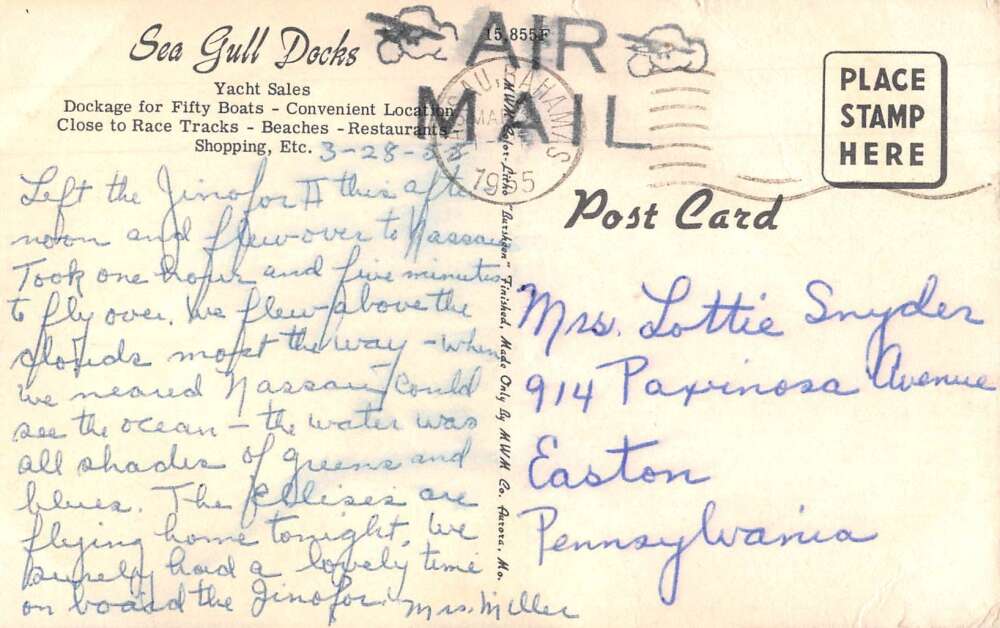 Sea Gull Docks
Yacht Sales
Dockage for Fifty Boats - Convenient Location
Close to Race Tracks - Beaches - Restaurants -
Shopping, Etc.
15,855F
AIR
MAIL
NASSAU, BAHAMAS
MAR
1955
PLACE
STAMP
HERE
Post Card
3-28-55
Left the Jinofor II this after
noon and flew over to Nassau
Took one hour and five minutes
to fly over. We flew above the
clouds most the way - when
we neared Nassau I could
see the ocean - the water was
all shades of greens and
blues. The Ellises are
flying home tonight. We
surely had a lovely time
on board the Jinofor. Mrs. Miller
MWM Color-Litho "Bursheen" Finished, Made Only By MWM Co. Aurora, Mo.
Mrs. Lottie Snyder
914 Paxinosa Avenue
Easton
Pennsylvania